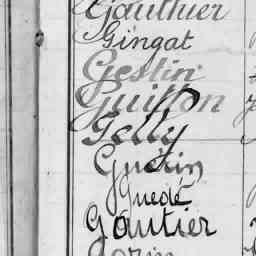 Gauthier
Gingat
Gestin
Guitton
Gelly
Guérin
Guedé
Gautier
Gorin